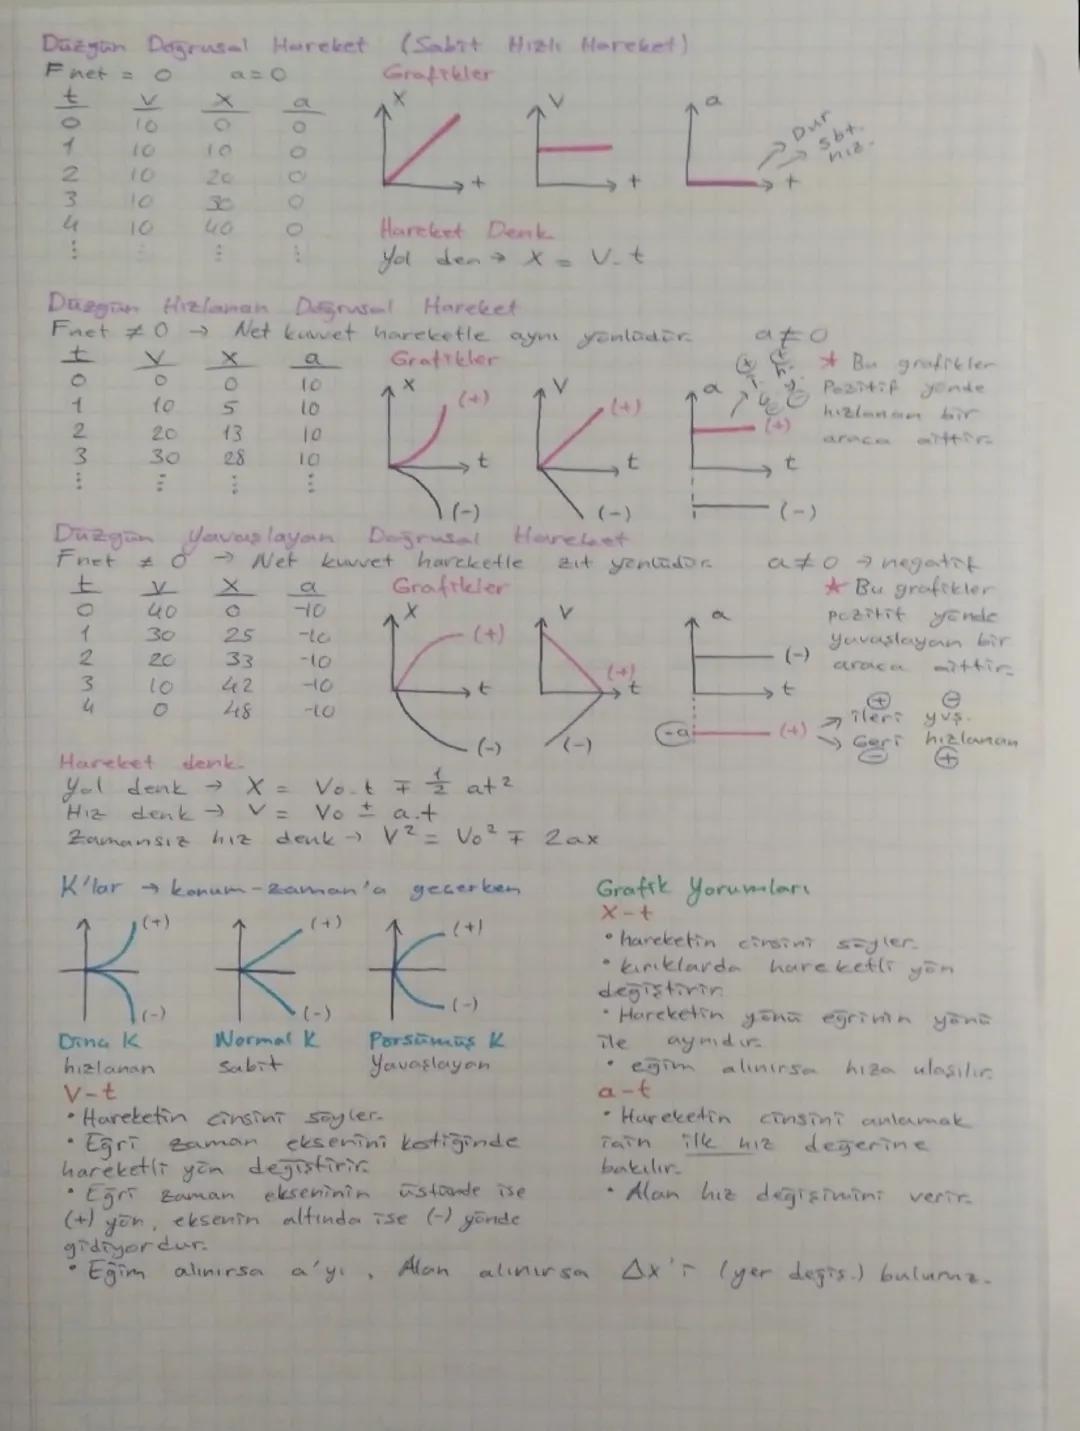 Düzgün Doğrusal Hareket (Sabit Hızlı Hareket)
Fnet = 0 a=0 Grafikler
t V X a
0 10 0 0
1 10 10 0
2 10 20 0
3 10 30 0
4 10 40 0
X t
V t
a t
Dur
Sbt.
hız.
Hareket Denk
Yol den → X = V.t
Düzgün Hızlanan Doğrusal Hareket
Fnet ≠ 0 → Net kuvvet hareketle aynı yönlüdür. a≠0
t V X a
0 0 0 10
1 10 5 10
2 20 13 10
3 30 28 10
Grafikler
X (+) t (-)
V (+) t (-)
a (+) t (-)
* Bu grafikler
Pozitif yönde
hızlanan bir
araca aittir.
Düzgün Yavaşlayan Doğrusal Hareket
Fnet ≠ 0 → Net kuvvet hareketle zıt yönlüdür. a≠0 → negatif
t V X a
0 40 0 -10
1 30 25 -10
2 20 33 -10
3 10 42 -10
4 0 48 -10
Grafikler
X (+) t (-)
V (+) t (-)
a (-) t
-a (+)
* Bu grafikler
pozitif yönde
yavaşlayan bir
araca aittir.
+ -
ileri yvş.
Geri hızlanan
- +
Hareket denk.
Yol denk → X = Vo.t ∓ 1/2 at²
Hız denk → V = Vo ± a.t
Zamansız hız denk → V² = Vo² ∓ 2ax
K'lar → konum-zaman'a geçerken
(+) (+) (+)
(-) (-) (-)
Dinç K Normal K Porsümüş K
hızlanan Sabit Yavaşlayan
V-t
• Hareketin cinsini söyler.
• Eğri zaman eksenini kestiğinde
hareketli yön değiştirir.
• Eğri zaman ekseninin üstünde ise
(+) yön, eksenin altında ise (-) yönde
gidiyordur.
• Eğim alınırsa a'yı, Alan alınırsa Δx'i (yer değiş.) buluruz.
Grafik Yorumları
X-t
• hareketin cinsini söyler.
• kırıklarda hareketli yön
değiştirir.
• Hareketin yönü eğrinin yönü
ile aynıdır.
• eğim alınırsa hıza ulaşılır.
a-t
• Hareketin cinsini anlamak
için ilk hız değerine
bakılır.
• Alan hız değişimini verir.